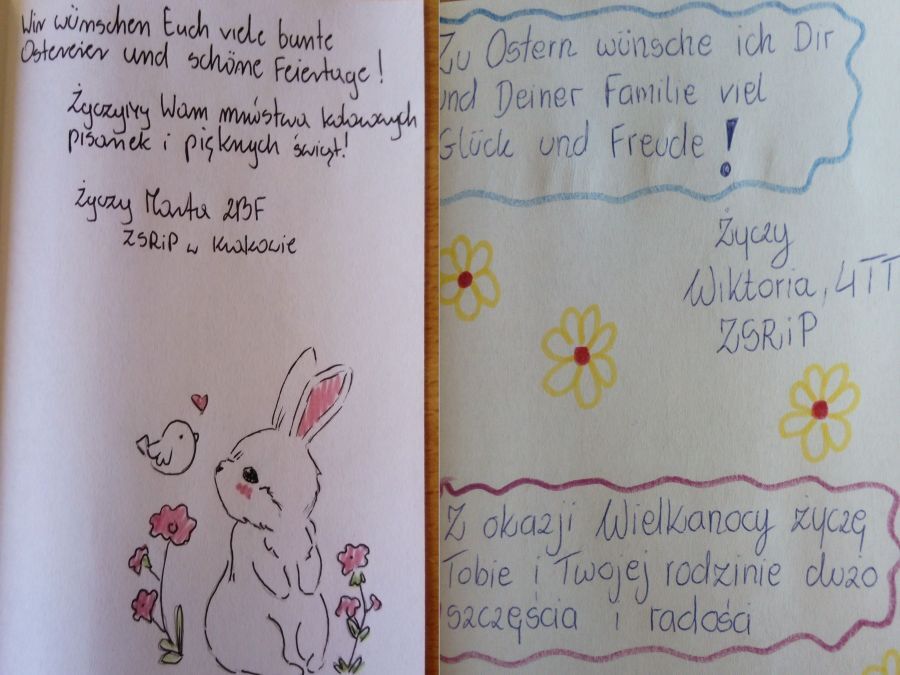 Wir wünschen Euch viele bunte
Ostereier und schöne Feiertage!
Życzymy Wam mnóstwa kolorowych
pisanek i pięknych świąt!
Życzy Marta 2BF
ZSRiP w Krakowie
Zu Ostern wünsche ich Dir
und Deiner Familie viel
Glück und Freude!
Życzy
Wiktoria, 4TT
ZSRiP
Z okazji Wielkanocy życzę
Tobie i Twojej rodzinie dużo
szczęścia i radości